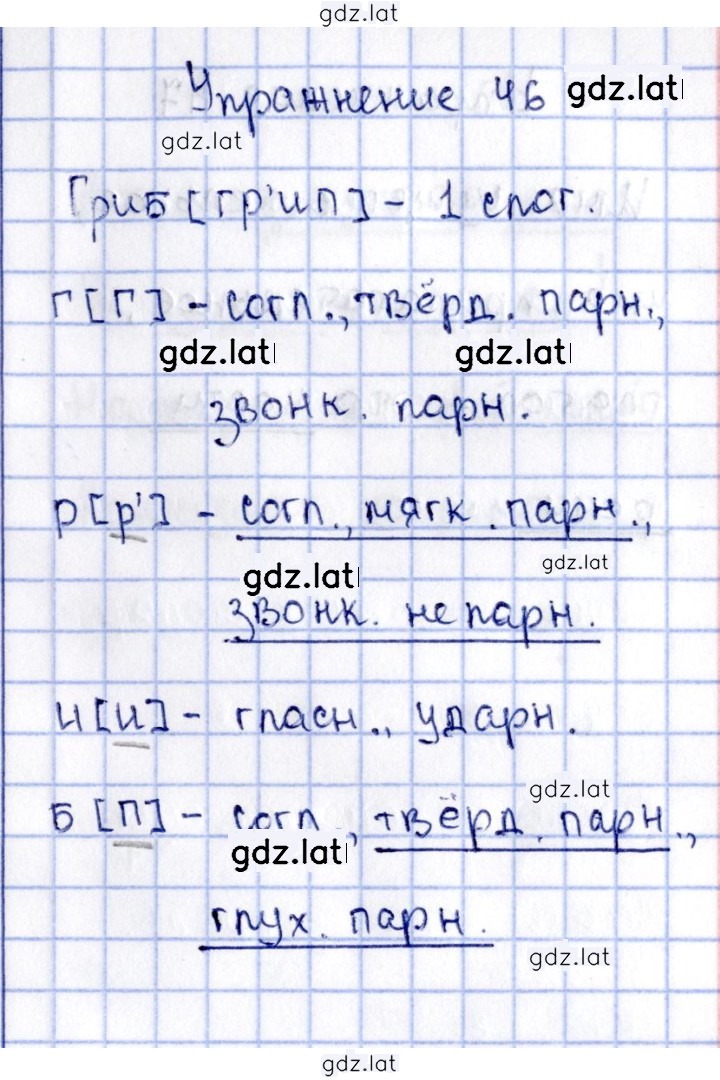 gdz.lat
Упражнение 46 gdz.lat
gdz.lat
Гриб [гр'ип] - 1 слог.
г [г] - согл., твёрд. парн.,
gdz.lat gdz.lat
звонк. парн.
р [р'] - согл., мягк. парн.,
gdz.lat gdz.lat
звонк. непарн.
и [и] - гласн., ударн.
gdz.lat
б [п] - согл., твёрд. парн.,
gdz.lat
глух. парн.
gdz.lat
gdz.lat